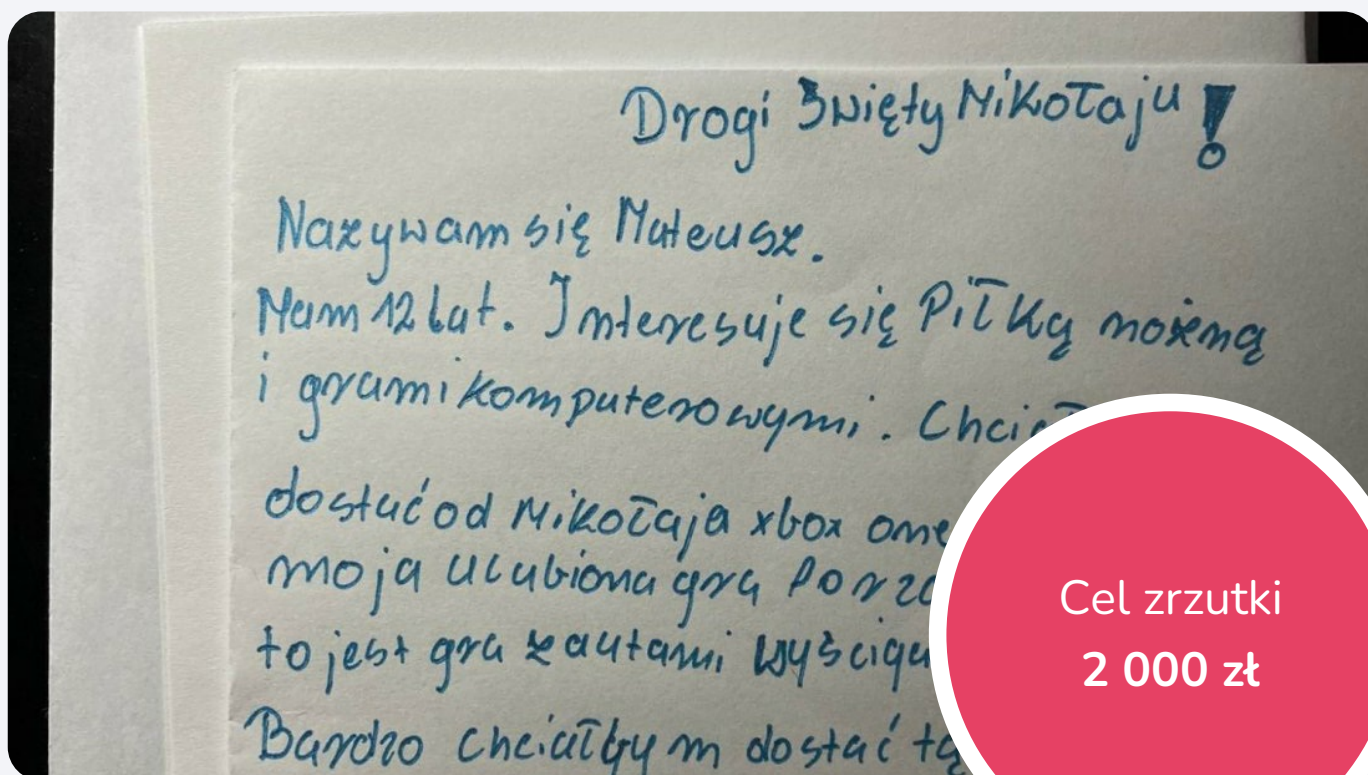 Drogi Święty Mikołaju!
Nazywam się Mateusz.
Mam 12 lat. Interesuje się Piłką nożną
i grami komputerowymi.
dostać od Mikołaja xbox one
moja ulubiona grą
to jest gra z autami
Bardzo chciałbym dostać tą
Cel zrzutki
2 000 zł